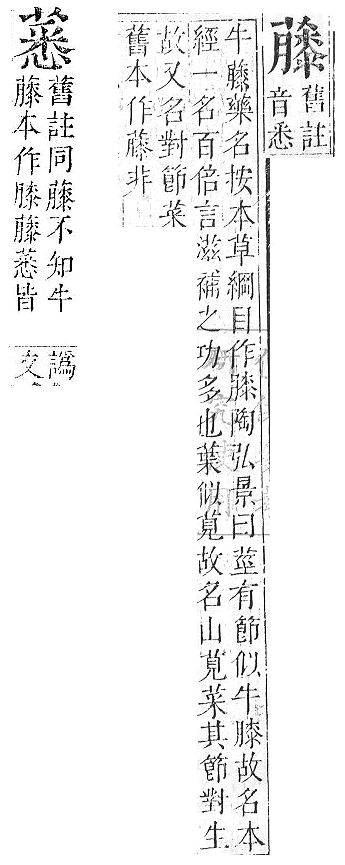 ⿱艹膝
舊註
音悉
牛膝藥名按本草綱目作膝陶弘景曰莖有節似牛膝故名本
經一名百倍言滋補之功多也葉似莧故名山莧菜其節對生
故又名對節菜
舊本作⿱艹膝非
⿱艹悉
舊註同⿱艹膝不知牛
⿱艹膝本作膝⿱艹膝⿱艹悉皆
譌
文